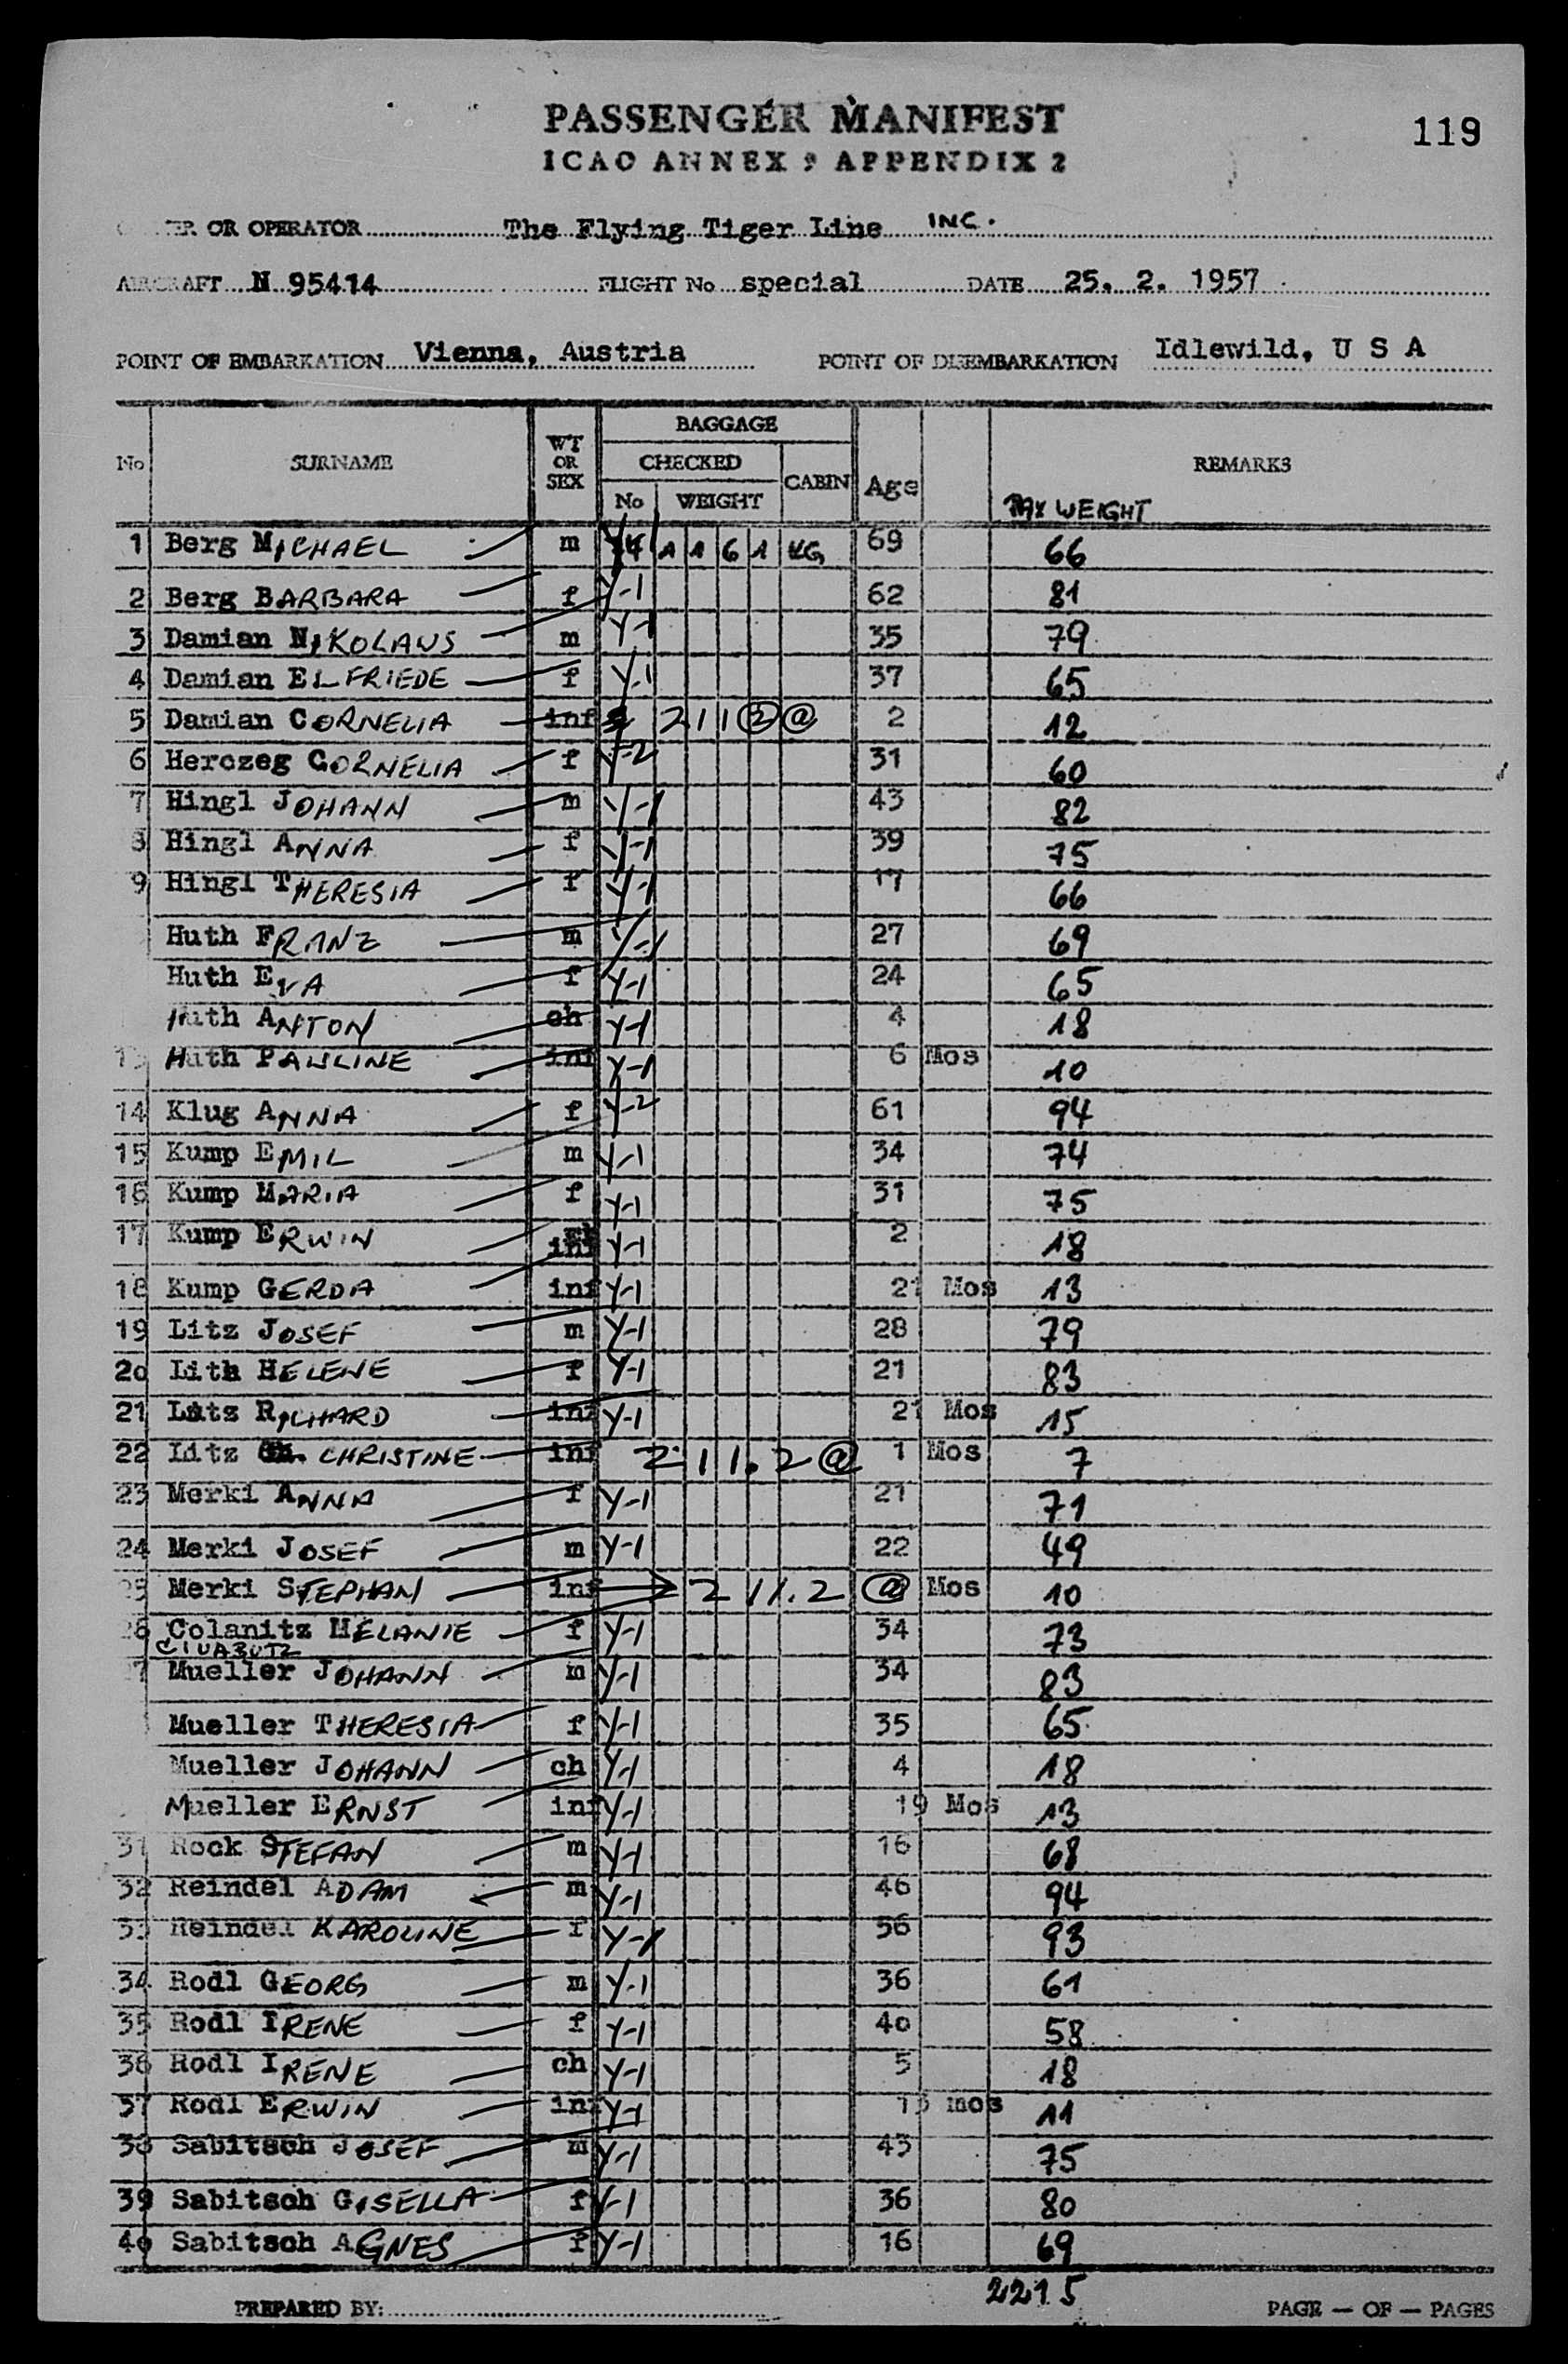 PASSENGER MANIFEST
119
ICAO ANNEX 9 APPENDIX 2
OR OPERATOR The Flying Tiger Line INC.
AIRCRAFT N 95414 FLIGHT No special DATE 25. 2. 1957
POINT OF EMBARKATION Vienna, Austria POINT OF DISEMBARKATION Idlewild, U S A
No SURNAME WT OR SEX BAGGAGE CHECKED No WEIGHT CABIN Age REMARKS
PAX WEIGHT
1 Berg MICHAEL m 1 1 6 1 KG 69 66
2 Berg BARBARA f Y-1 62 81
3 Damian NIKOLAUS m Y-1 35 79
4 Damian ELFRIEDE f Y-1 37 65
5 Damian CORNELIA inf 2 1 1 2 @ 2 12
6 Herczeg CORNELIA f Y-2 31 60
7 Hingl JOHANN m Y-1 43 82
8 Hingl ANNA f Y-1 39 75
9 Hingl THERESIA f Y-1 17 66
Huth FRANZ m Y-1 27 69
Huth EVA f Y-1 24 65
Huth ANTON ch Y-1 4 18
13 Huth PAULINE inf Y-1 6 Mos 10
14 Klug ANNA f Y-2 61 94
15 Kump EMIL m Y-1 34 74
16 Kump MARIA f Y-1 31 75
17 Kump ERWIN inf Y-1 2 18
18 Kump GERDA inf Y-1 21 Mos 13
19 Litz JOSEF m Y-1 28 79
20 Lith HELENE f Y-1 21 83
21 Litz RICHARD inf Y-1 21 Mos 15
22 Litz CHRISTINE inf 2 1 1. 2 @ 1 Mos 7
23 Merki ANNA f Y-1 21 71
24 Merki JOSEF m Y-1 22 49
25 Merki STEPHAN inf 2 1 1. 2 @ Mos 10
26 Colanitz MELANIE f Y-1 34 73
27 Mueller JOHANN m Y-1 34 83
Mueller THERESIA f Y-1 35 65
Mueller JOHANN ch Y-1 4 18
Mueller ERNST inf Y-1 19 Mos 13
31 Rock STEFAN m Y-1 16 68
32 Reindel ADAM m Y-1 46 94
33 Reindel KAROLINE f Y-1 56 93
34 Rodl GEORG m Y-1 36 61
35 Rodl IRENE f Y-1 40 58
36 Rodl IRENE ch Y-1 5 18
37 Rodl ERWIN inf Y-1 mos 11
38 Sabitsch JOSEF m Y-1 43 75
39 Sabitsch GISELLA f Y-1 36 80
40 Sabitsch AGNES f Y-1 16 69
2215
PREPARED BY: PAGE — OF — PAGES